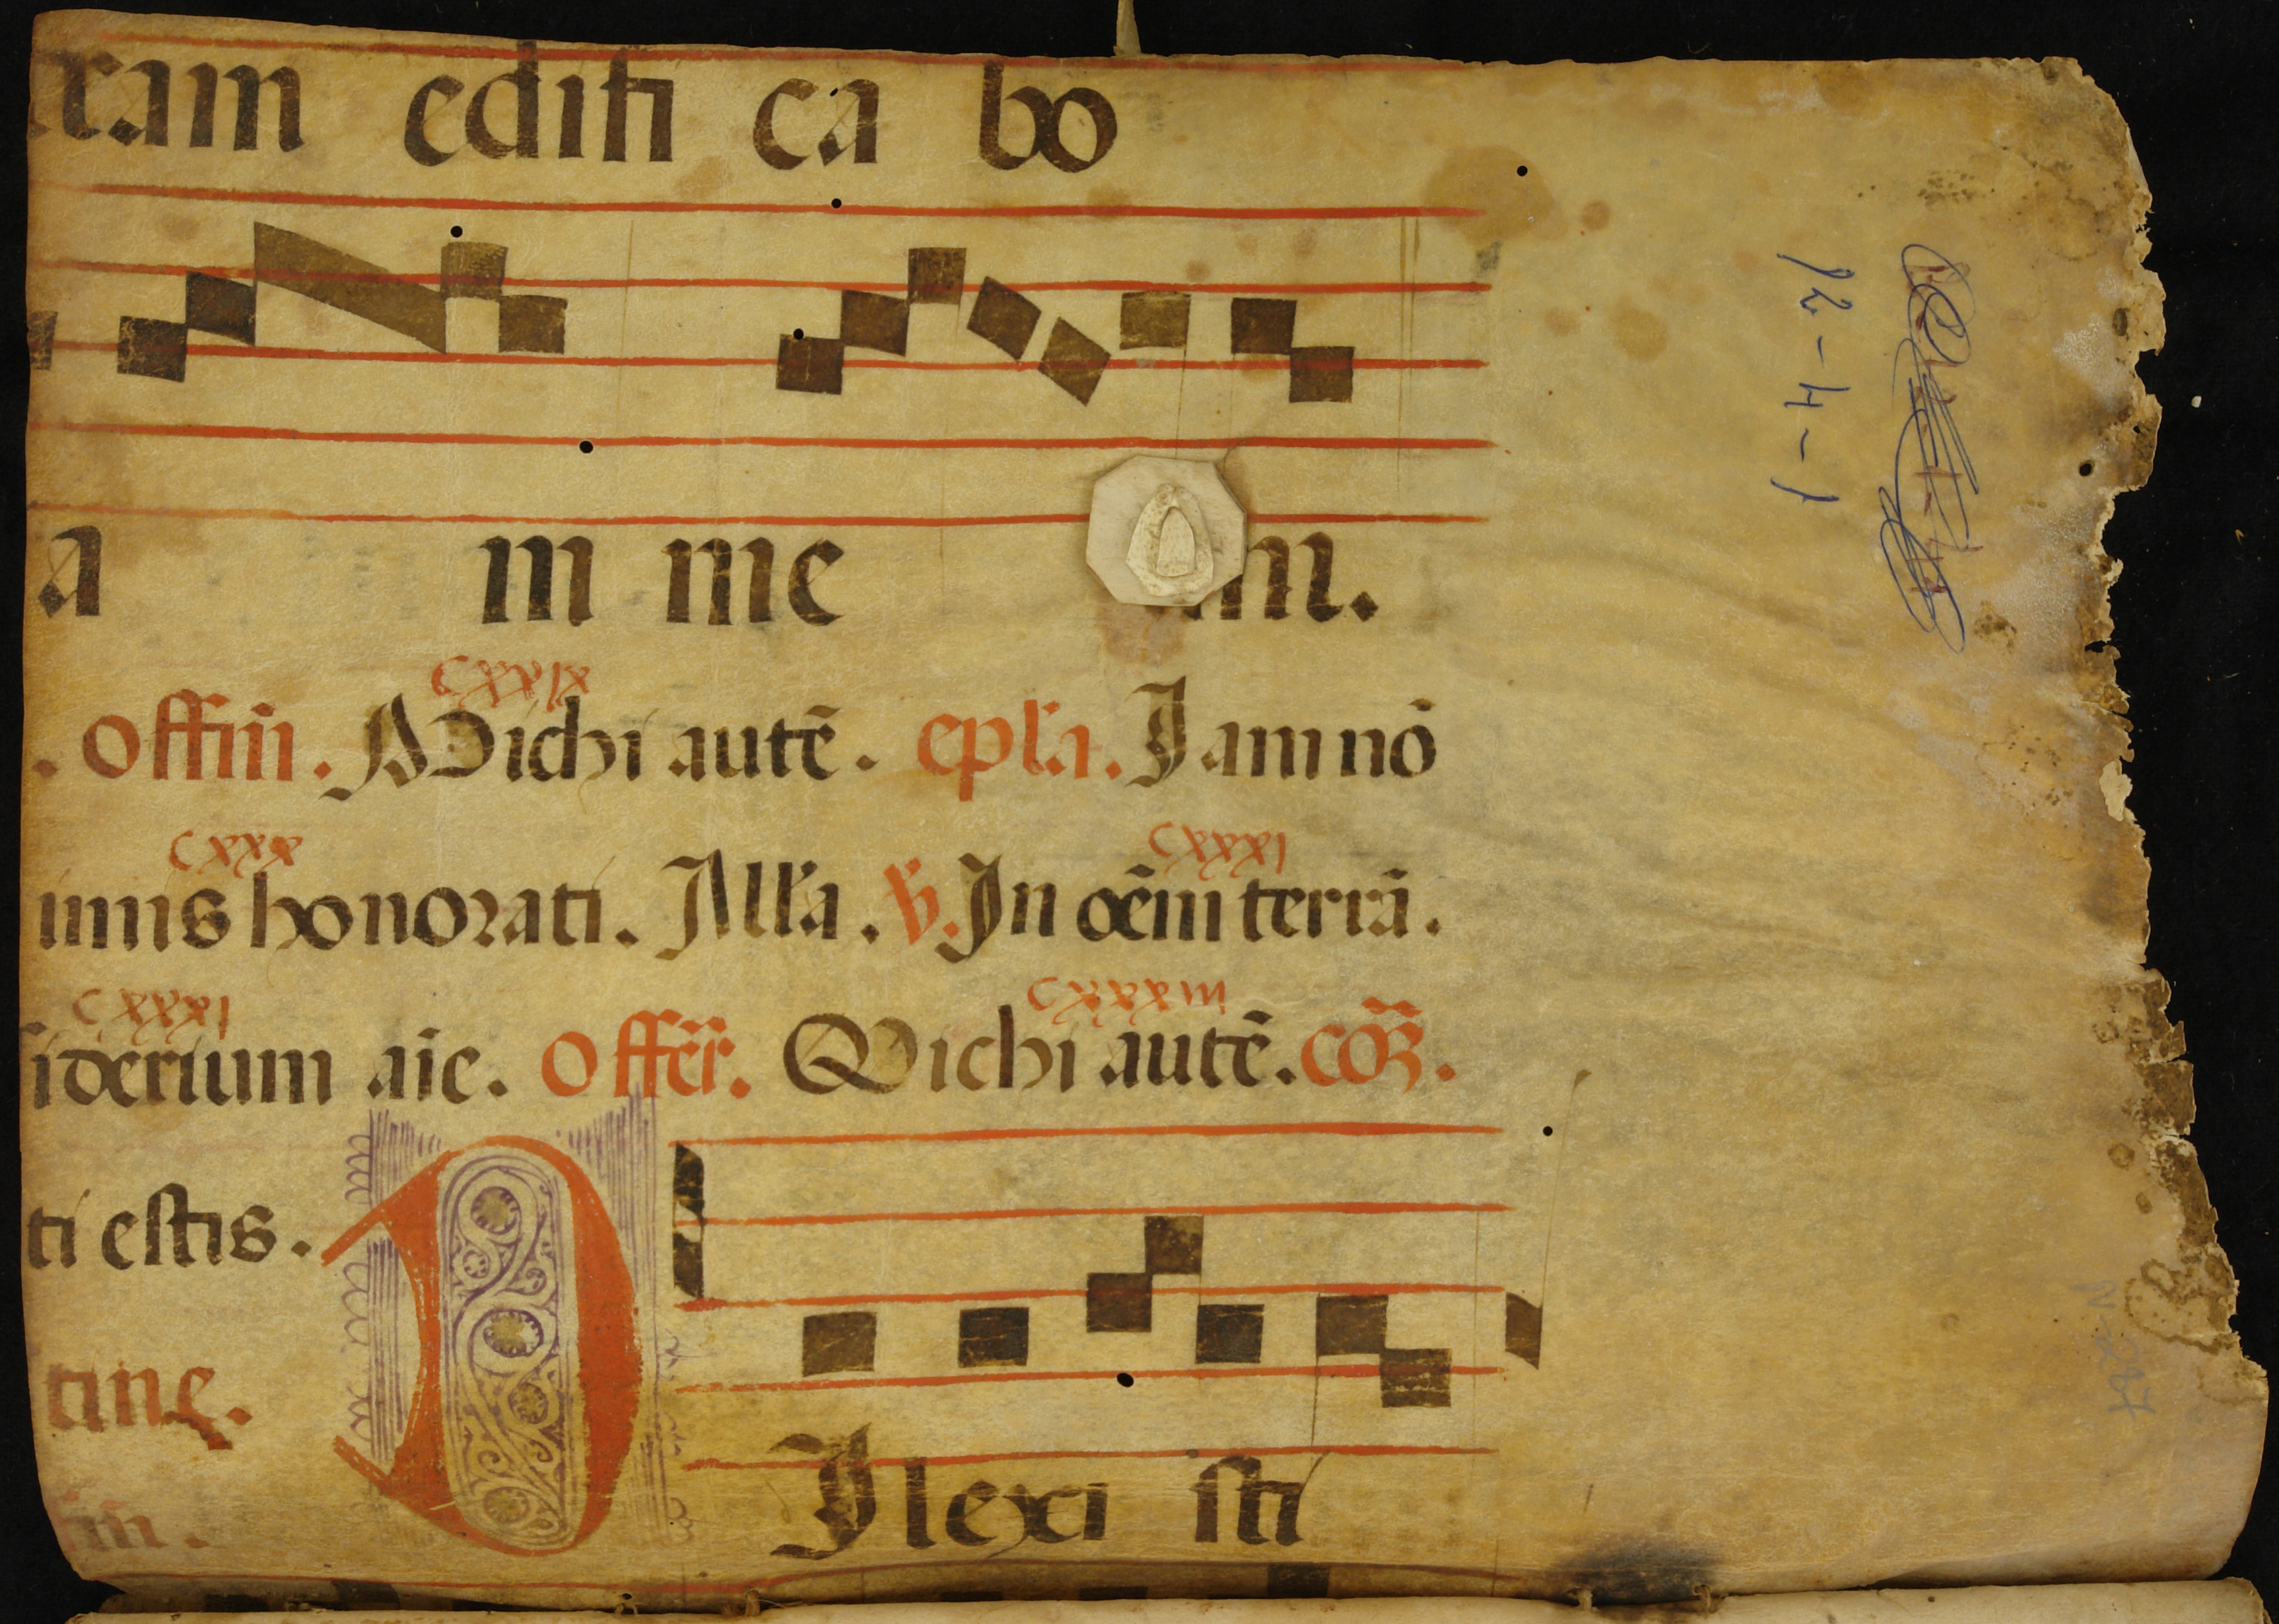 ram edifi ca bo
a m me m.
cxxix
. offim̄. Michi autē. epl'a. Iam nō
cxxx cxxxi
imis honorati. All'a. v̄. In oēm terrā.
cxxxi cxxxiii
iderium aīe. offēr. Michi autē. cō.
ti estis.
tine.
m̄.
Ilexi sti
92-4-1